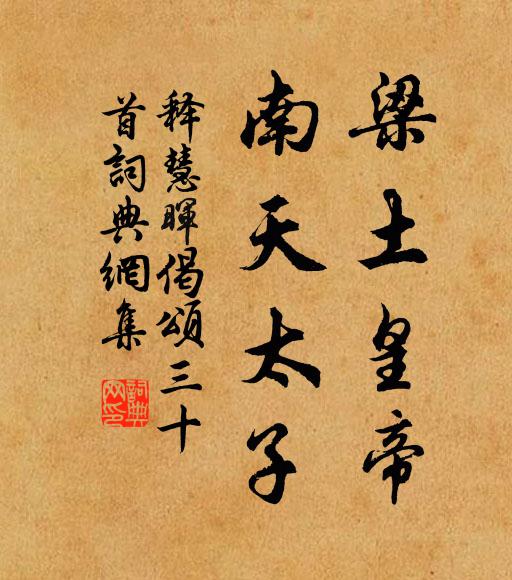 梁土皇帝
南天太子
释慧暉偈頌三十
首詞典網集
詞典
网印